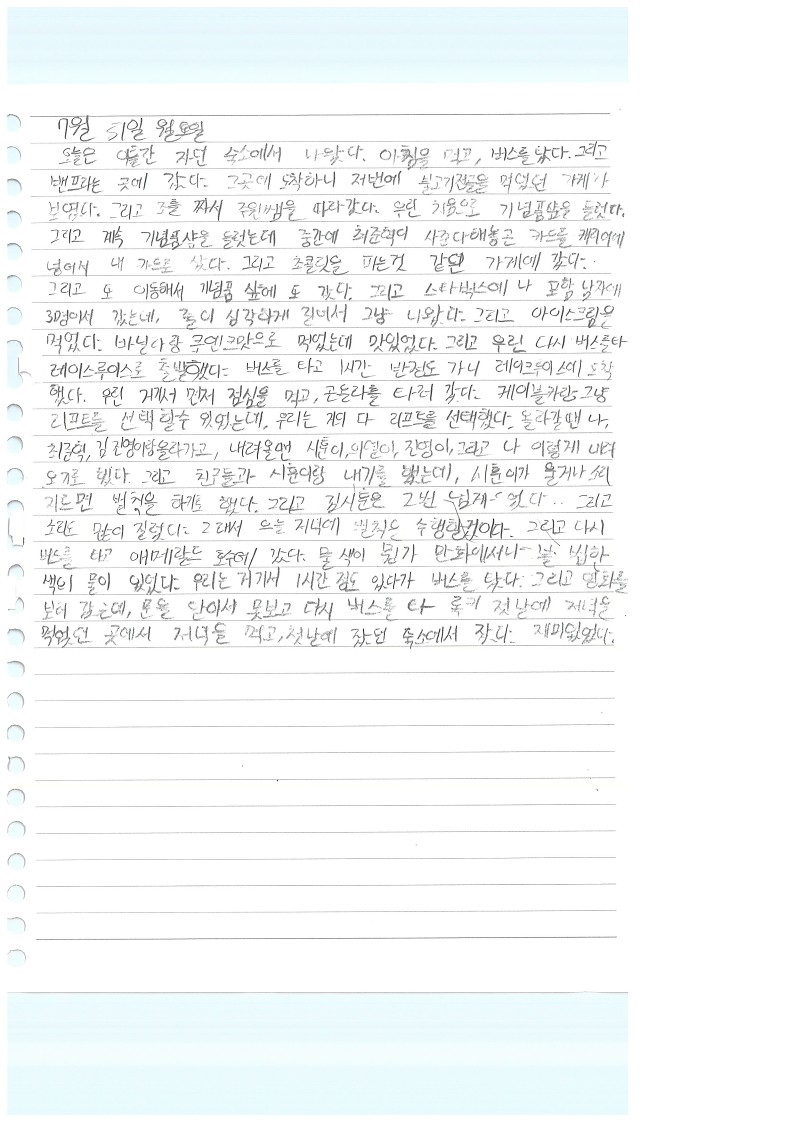 7월 31일 월요일
오늘은 이틀간 자던 숙소에서 나왔다. 아침을 먹고, 버스를 탔다. 그리고
밴프라는 곳에 갔다. 그곳에 도착하니 저번에 불고기전골을 먹었던 가게가
보였다. 그리고 조를 짜서 주원쌤을 따라갔다. 우린 처음으로 기념품샵을 들렀다.
그리고 계속 기념품샵을 들렀는데 중간에 최준혁이 사준다 해놓곤 카드를 캐리어에
넣어서 내 카드로 샀다. 그리고 초콜릿을 파는것 같은 가게에 갔다.
그리고 또 이동해서 기념품 샾에 또 갔다. 그리고 스타벅스에 나 포함 남자애
3명이서 갔는데, 줄이 심각하게 길어서 그냥 나왔다. 그리고 아이스크림을
먹었다. 바닐라랑 맛으로 먹었는데 맛있었다. 그리고 우린 다시 버스를 타
레이스루이스로 출발했다. 버스를 타고 1시간 반정도 가니 레이크루이스에 도착
했다. 우린 거기서 먼저 점심을 먹고, 곤돌라를 타러 갔다. 케이블카랑 그냥
리프트를 선택 할수 있었는데, 우리는 거의 다 리프트를 선택했다. 올라갈땐 나,
최준혁, 김진영이랑 올라가고, 내려올땐 시훈이, 진영이, 그리고 나 이렇게 내려
오기로 했다. 그리고 친구들과 시훈이랑 내기를 했는데, 시훈이가 울거나 소리
지르면 벌칙을 하기로 했다. 그리고 김시훈은 그런 .. 그리고
소리도 많이 질렀다. 그래서 오늘 저녁에 벌칙을 수행할것이다. 그리고 다시
버스를 타고 애메랄드 호수에 갔다. 물 색이 뭔가 만화에서나 볼 법한
색의 물이 있었다. 우리는 거기서 1시간 정도 있다가 버스를 탔다. 그리고 영화를
보러 갔는데, 문을 닫아서 못보고 다시 버스를 타 록키 첫날에 저녁을
먹었던 곳에서 저녁을 먹고, 첫날에 잤던 숙소에서 잤다. 재미있었다.